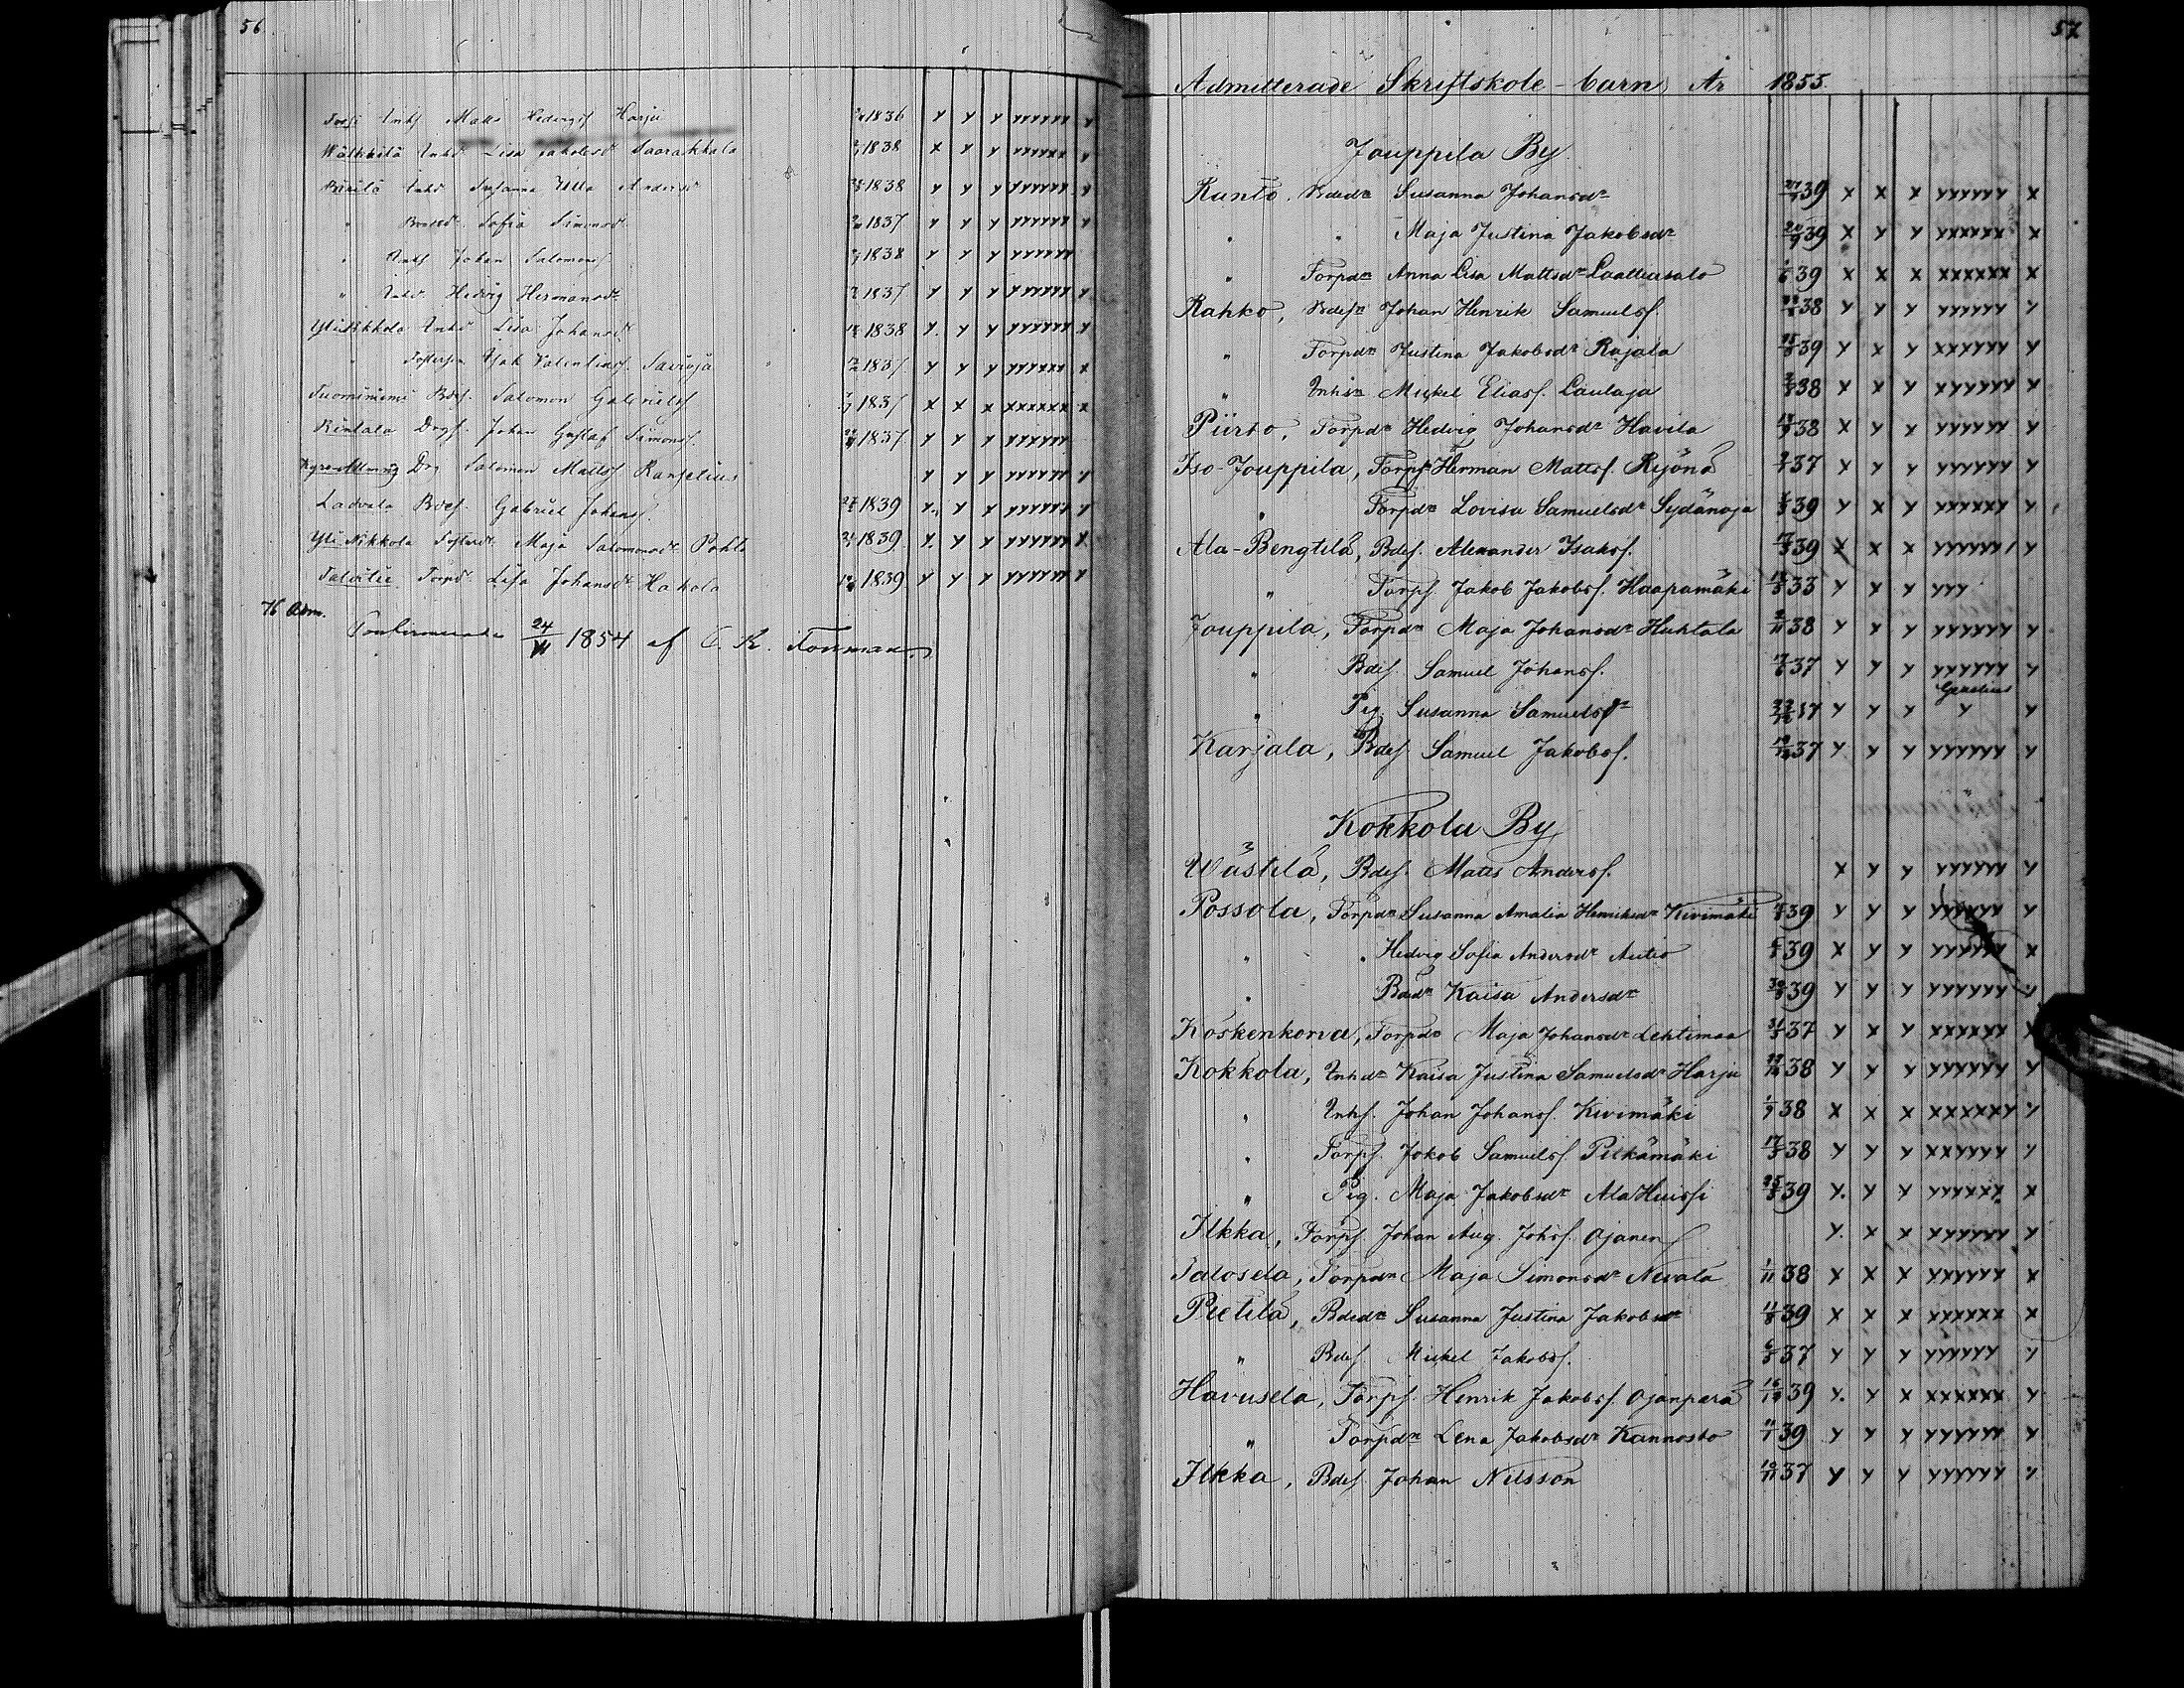 56
Inhs Matts Hedvigss Harju 1836 y y y yyyyyy y
Wälkkilä Inhd Lisa Jakobsdr Saarakkala 1838 x y y yyyyyy y
Inhd Susanna Ulla Andersdr 1838 y y y yyyyyy y
" Bondedr Sofia Simonsdr 1837 y y y yyyyyy y
" Inhs Johan Salomonss 1838 y y y yyyyyy
" Inhd Hedvig Hermansdr 1837 y y y yyyyyy y
Yli Nikkola Inhd Lisa Johansdr 1838 y. y y yyyyyy y
" Fosterson Isak Valentinss. Savioja 1837 y y y yyyyxx x
Suominiemi Bdes. Salomon Gabrielss 1837 x x x xxxxxx x
Rintala Drgs. Johan Gustaf Simonss. 1837 y y y yyyyyy
Kyro Allmog Drg Salomon Mattss Rangelius y y y yyyyyy y
Ladvala Bdes. Gabriel Johanss. 1839 y. y y yyyyyy y
Yli Nikkola Fosterdr Maja Salomonsdr Pohto 1839 y. y y yyyyyy y
Talvitie Torpdr Lisa Johansdr Hakola 1839 y y y yyyyyy y
76 Adm.
Confirmerade 24/VI 1854 af C. R. Forsman
57
Admitterade Skriftskole-barn År 1855.
Jouppila By
Runto. Bdedr Susanna Johansdr 39 x x x yyyyyy x
" " Maja Justina Jakobsdr 20/9 39 x y y yxxxxx x
" Torpdr Anna Lisa Mattsdr Laatturisalo 39 x x x xxxxxx x
Rahko, Bdesn Johan Henrik Samuelss. 38 y y y yyyyyy y
" Torpdr Justina Jakobsdr Rajala 39 y x y xxyyyy y
" Inhsn Mickel Eliass. Laulaja 38 x x x xyyyyy x
Piirto, Torpdr Hedvig Johansdr Havila 38 x y x yyyyyy y
Iso-Jouppila, Torps Herman Mattss. Rijönä 37 y y y yyyyyy y
" Torpdr Lovisa Samuelsdr Sydänoja 39 y x y yyxxxy y
Ala-Bengtilä, Bdes. Alexander Isakss. 39 x x x yyyyyy y
" Torps. Jakob Jakobss. Haapamäki 33 y y y yyy
Jouppila, Torpdr Maja Johansdr Huhtala 38 y y y yyyyyy y
" Bdes. Samuel Johanss. 37 y y y yyyyyy y
" Pig. Susanna Samuelsdr 17 y y y y y
Karjala, Bdes Samuel Jakobss. 37 y y y yyyyyy y
Kokkola By
Wästilä, Bdes. Matts Anderss. x y y yyyyyy y
Possola, Torpdr Susanna Amalia Henriksdr Kivimäki 39 y y y yyyyyy y
" " Hedvig Sofia Andersdr Autio 39 x y y yyyyyy x
" Bdedr Kaisa Andersdr 39 y y y yyyyyy y
Koskenkorva, Torpdr Maja Johansdr Lehtimaa 37 y x y xxxxxy x
Kokkola, Inhdr Kaisa Justina Samuelsdr Harju 38 y y y yyyyyy y
" Inhs. Johan Johanss. Kivimäki 1/9 38 x x x xxxxxy y
" Torps. Jakob Samuelss. Pitkämäki 38 y y y xxyyyy y
" Pig. Maja Jakobsdr Ala Huissi 39 y. y y yyyxxy x
Ilkka, Torps. Johan Aug. Johss. Ojanen y. x x xyyyyy y
Talosela, Torpdr Maja Simonsdr Nevala 1/11 38 y x x yyyyyy x
Pietilä, Bdedr Susanna Justina Jakobsdr 11/8 39 x x x yxxxxx x
" Bdes. Mickel Jakobss. 37 y y y yyyyyy y
Havusela, Torps. Henrik Jakobss. Ojanperä 39 y. y x xxxxxx y
" Torpdr Lena Jakobsdr Kannosto 39 y y y yyyyyy y
Ilkka, Bdes Johan Nilsson 37 y y y yyyyyy y